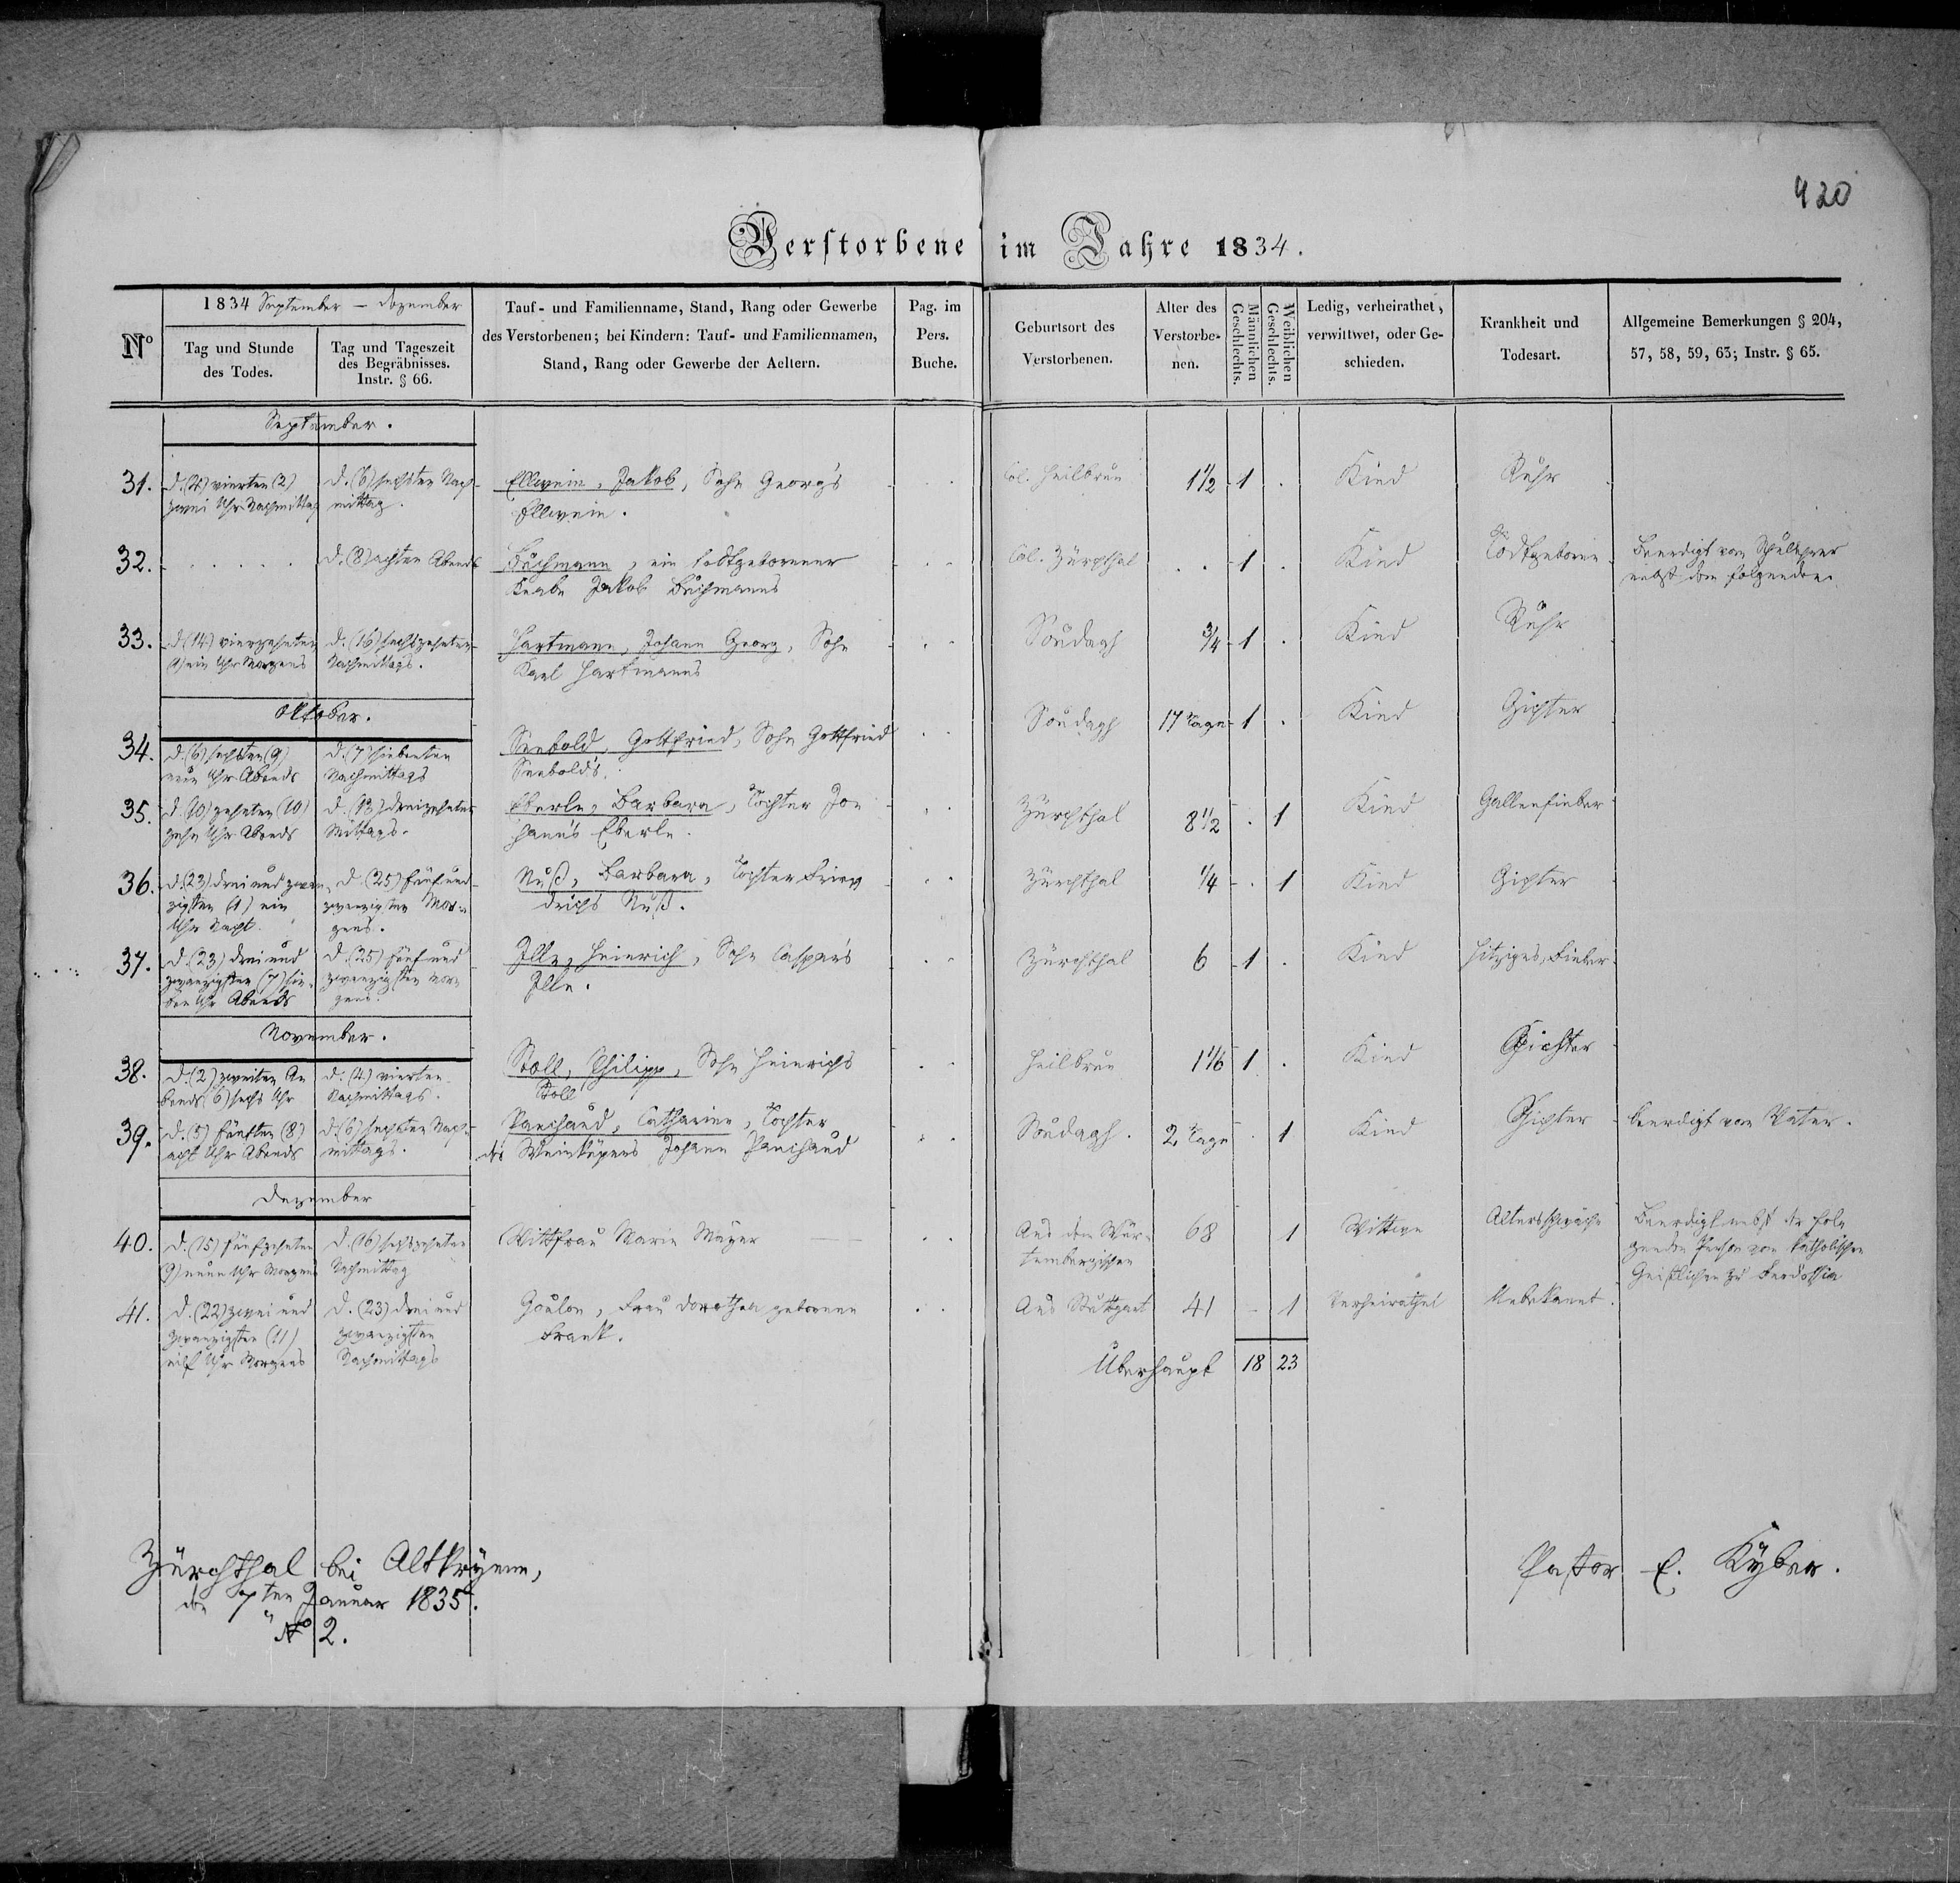 420
Verstorbene im Jahre 1834.
No
1834 September – Dezember
Tag und Stunde
des Todes.
Tag und Tageszeit
des Begräbnisses.
Instr. § 66.
Tauf- und Familienname, Stand, Rang oder Gewerbe
des Verstorbenen; bei Kindern: Tauf- und Familiennamen,
Stand, Rang oder Gewerbe der Aeltern.
Pag. im
Pers.
Buche.
Geburtsort des
Verstorbenen.
Alter des
Verstorbe-
nen.
Männlichen
Geschlechts.
Weiblichen
Geschlechts.
Ledig, verheirathet,
verwittwet, oder Ge-
schieden.
Krankheit und
Todesart.
Allgemeine Bemerkungen § 204,
57, 58, 59, 63; Instr. § 65.
September.
31. d. (4) vierten (2) d. (6) sechsten Nach- Ellwein, Jakob, Sohn Georg's Col. Heilbrun 1 1/2 1 . Kind Ruhr
zwei Uhr Nachmittag mittag. Ellwein.
32. . . . . . d. (8) achten Abends Buchmann, ein todtgeborener Col. Zürchthal . . 1 . Kind Todtgeboren Beerdigt vom Schullehrer
Knabe Jakob Buchmanns nebst dem folgenden.
33. d (14) vierzehnten d. (16) sechszehnten Hartmann, Johann Georg, Sohn Soudagh 3/4 1 . Kind Ruhr
(1) ein Uhr Morgens Nachmittags. Karl Hartmanns
Oktober.
34. d. (6) sechsten (9) d. (7) siebenten Seebold, Gottfried, Sohn Gottfried Soudagh 17 Tage 1 . Kind Gichter
neun Uhr Abends Nachmittags Seebold's.
35. d (10) zehnten (10) d. (13) dreizehnten Eberle, Barbara, Tochter Jo- Zürchthal 8 1/2 . 1 Kind Gallenfieber
zehn Uhr Abends Mittags. hann's Eberle.
36. d. (23) drei und zwan- d. (25) fünf und Nuß, Barbara, Tochter Frie- Zürchthal 1/4 . 1 Kind Gichter
zigsten (1) ein zwanzigsten Mor- drichs Nuß.
Uhr Nacht. gens.
37. d. (23) drei und d. (25) fünf und Ille, Heinrich, Sohn Caspar's Zürchthal 6 1 . Kind hitziges Fieber
zwanzigsten (7) sie- zwanzigsten Mor- Ille.
ben Uhr Abends gens.
November.
38. d. (2) zweiten A- d. (4) vierten Stoll, Philipp, Sohn Heinrichs Heilbrun 1 1/6 1 . Kind Gichter
bends (6) sechs Uhr Nachmittags. Stoll
39. d. (5) fünften (8) d. (6) sechsten Nach- Panchaud, Catharine, Tochter Soudagh. 2 Tage . 1 Kind Gichter beerdigt vom Vater.
acht Uhr Abends mittags. des Weinküpers Johann Panchaud
Dezember
40. d. (15) fünfzehnten d. (16) sechszehnten Wittfrau Marie Mayer Aus dem Wür- 68 1 Wittwe Altersschwäche Beerdigt nebst der fol-
(9) neun Uhr Morgens Nachmittag tembergischen genden Person vom katholischen
Geistlichen zu Feodossia
41. d. (22) zwei und d. (23) drei und Goulon, Frau Dorothea geborene Aus Stuttgart 41 – 1 Verheirathet Unbekannt.
zwanzigsten (11) zwanzigsten Frank.
eilf Uhr Morgens Nachmittags
Überhaupt 18 23
Zürchthal bei Altkrÿmm,
den 7ten Januar 1835.
No 2.
Pastor E. Kÿber.